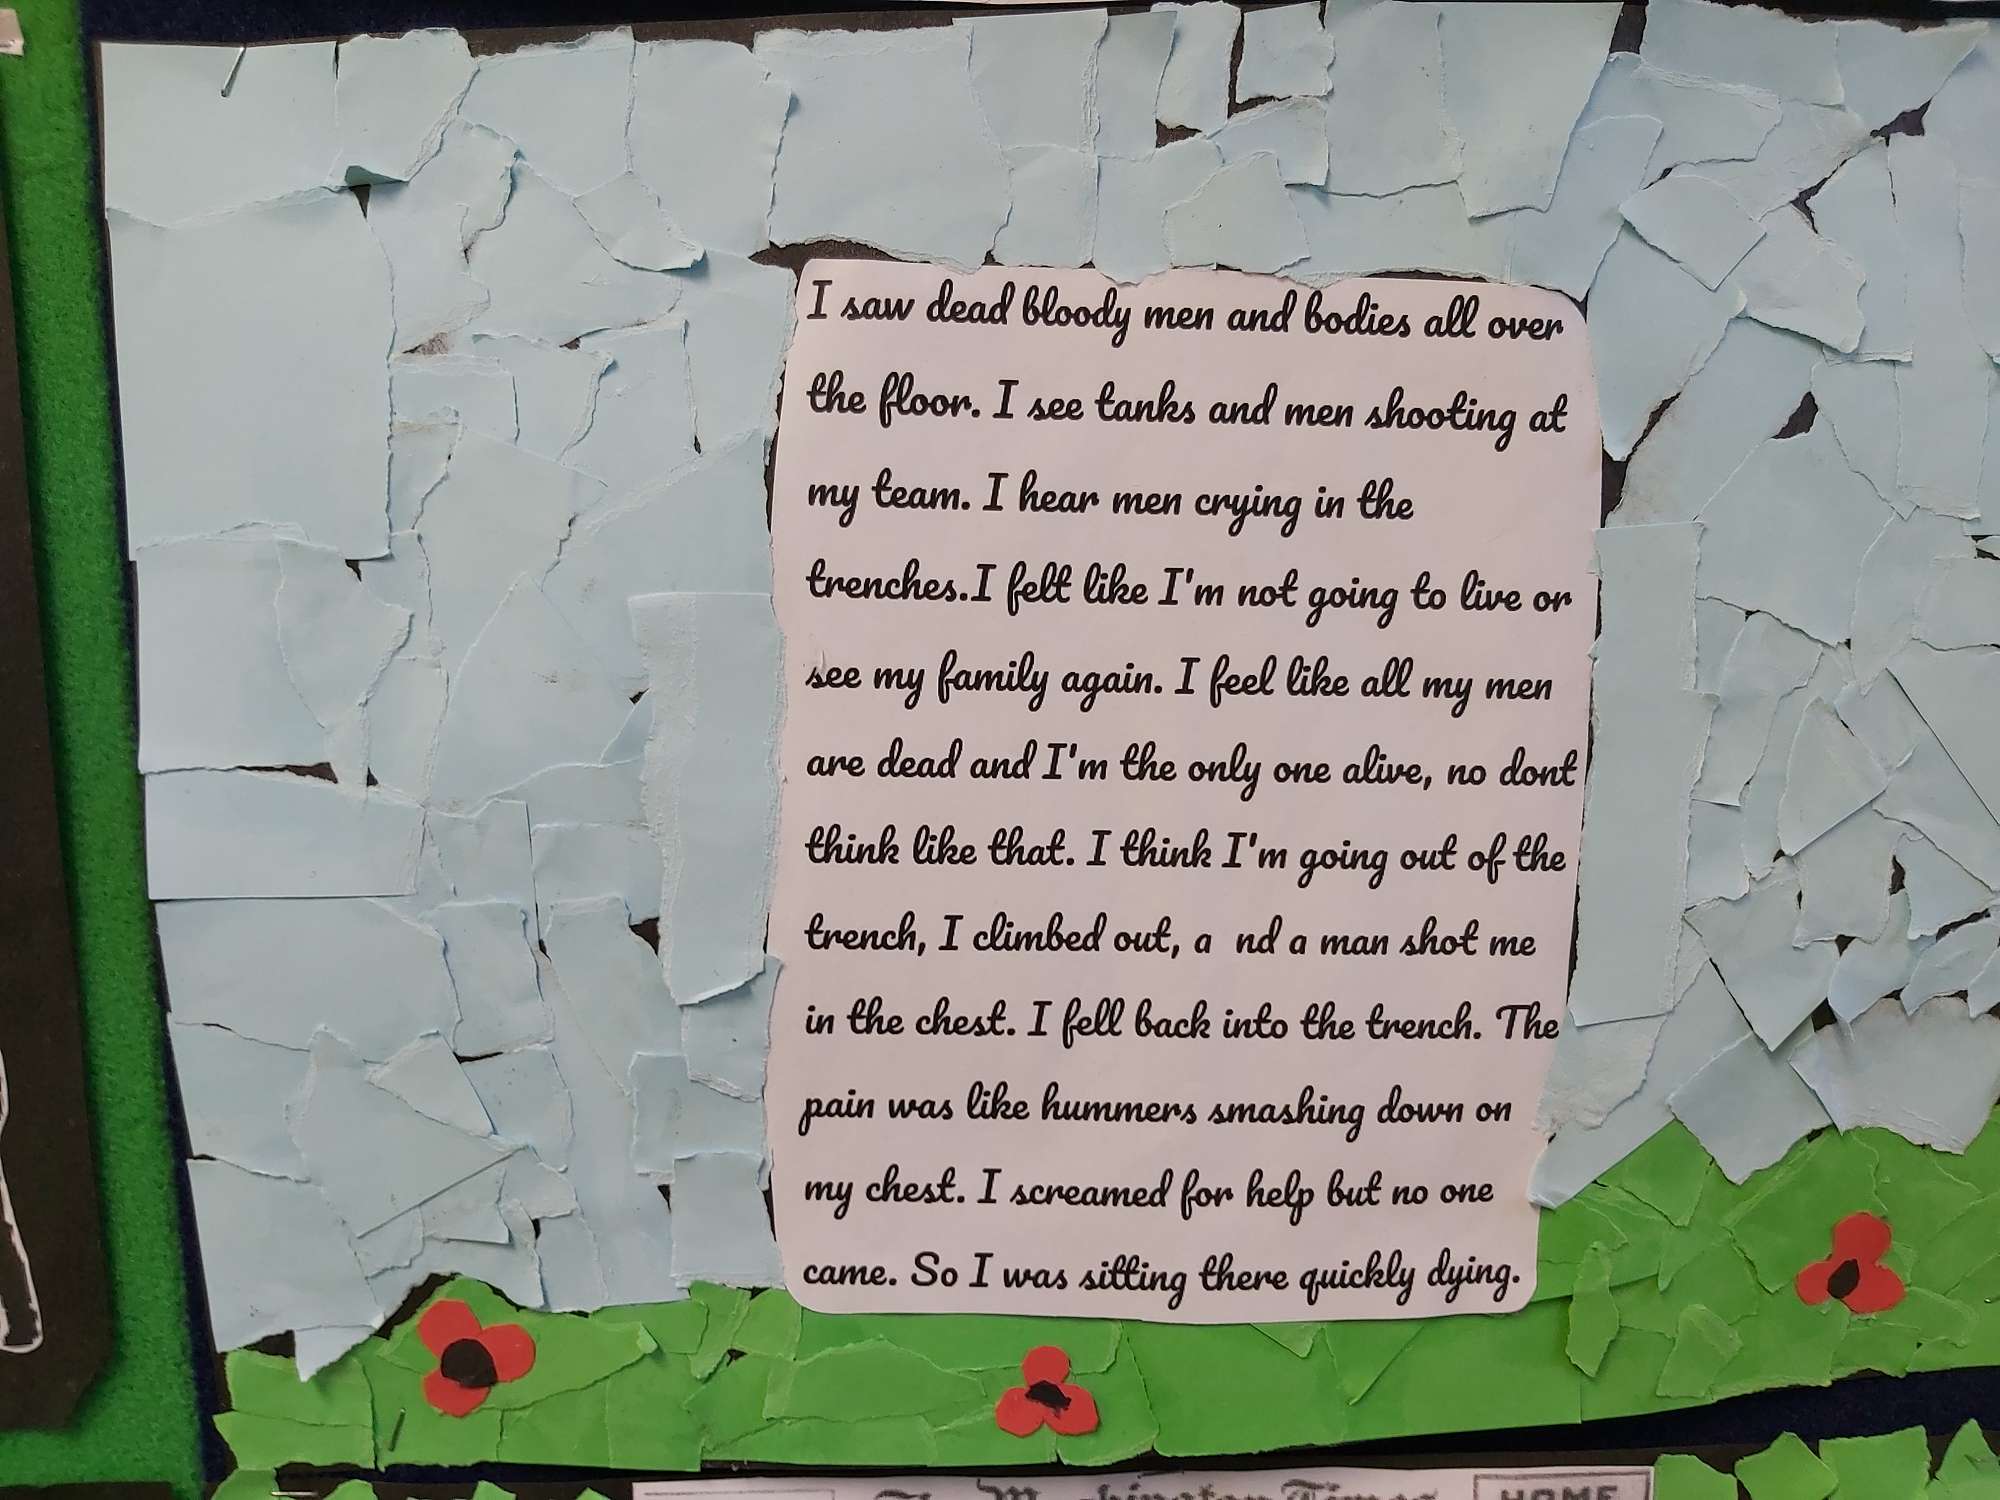 I saw dead bloody men and bodies all over
the floor. I see tanks and men shooting at
my team. I hear men crying in the
trenches.I felt like I'm not going to live or
see my family again. I feel like all my men
are dead and I'm the only one alive, no dont
think like that. I think I'm going out of the
trench, I climbed out, a  nd a man shot me
in the chest. I fell back into the trench. The
pain was like hummers smashing down on
my chest. I screamed for help but no one
came. So I was sitting there quickly dying.
The Washington Times HOME